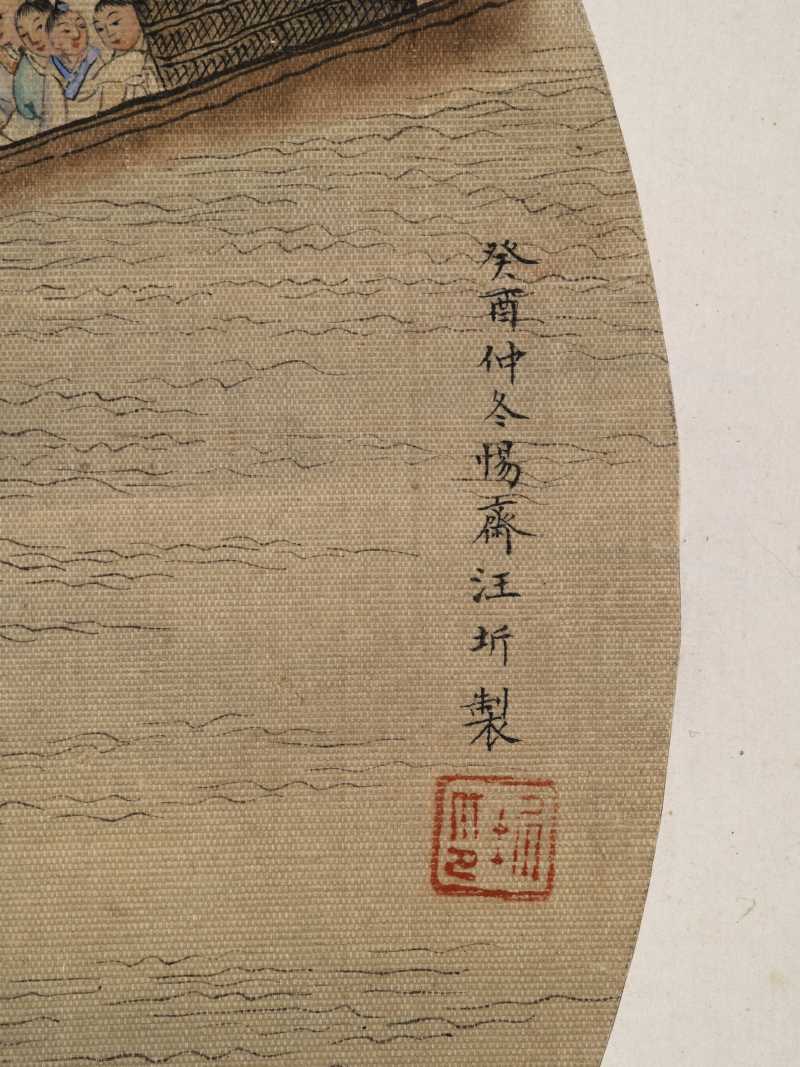 癸酉仲冬惕齋汪圻製